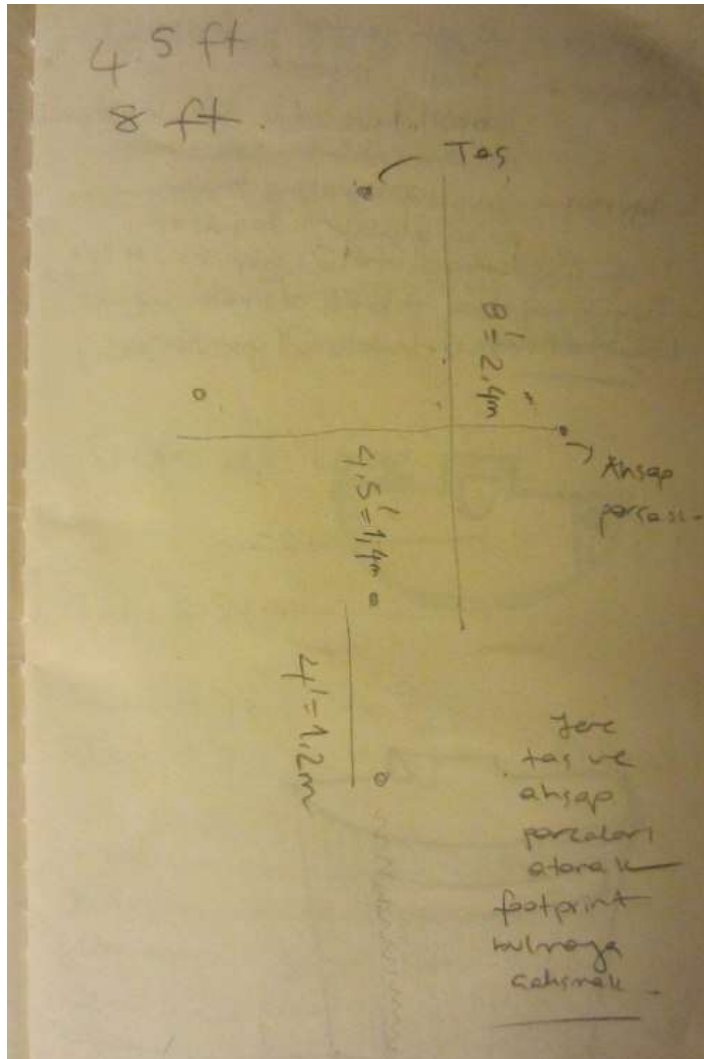 4.5 ft
8 ft.
Taş
8'=2,4m
Ahşap
parçası
4,5'=1,4m
4'=1,2m
Yere
taş ve
ahşap
parçaları
atarak
footprint
bulmaya
çalışmak.